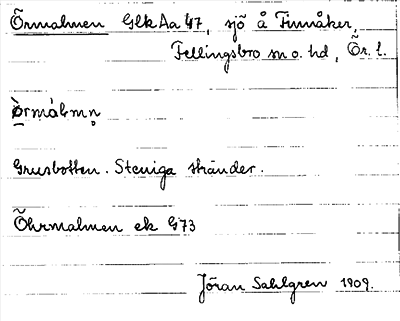 Õrmalmen GlkAa 47, sjö å Finnåker,
Fellingsbro sn o. hd, Õr. l.
òrmálmn̥
Grusbotten. Steniga stränder.
Õhrmalmen ek G73
Jöran Sahlgren 1909.